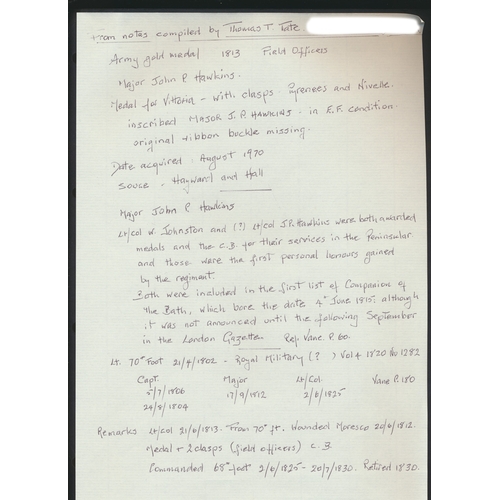 From notes compiled by Thomas T. Tate
Army gold medal 1813 Field Officers
Major John P. Hawkins.
Medal for Vittoria - with clasps Pyrenees and Nivelle.
inscribed MAJOR J. P. HAWKINS. in E.F. condition.
original ribbon buckle missing.
Date acquired. August 1970
Souce. Hayward and Hall
Major John P. Hawkins
Lt/Col W. Johnston and (?) Lt/Col J.P. Hawkins were both awarded
medals and the C.B. for their services in the Peninsular
and those were the first personal honours gained
by the regiment.
Both were included in the first list of Companion of
the Bath, which bore the date 4th June 1815: although
it was not announced until the following September
in the London Gazette. Ref. Vane. P. 60.
Lt. 70th Foot 21/4/1802 - Royal Military (?) Vol 4 1820 No 1282
Capt. Major Lt/Col. Vane P.180
5/7/1806 17/9/1812 2/6/1825
24/8/1804
Remarks Lt/Col 21/6/1813. From 70th ft. Wounded Moresco 20/6/1812.
Medal + 2 clasps (field officers) C.B.
Commanded 68th foot 2/6/1825 - 20/7/1830. Retired 1830.